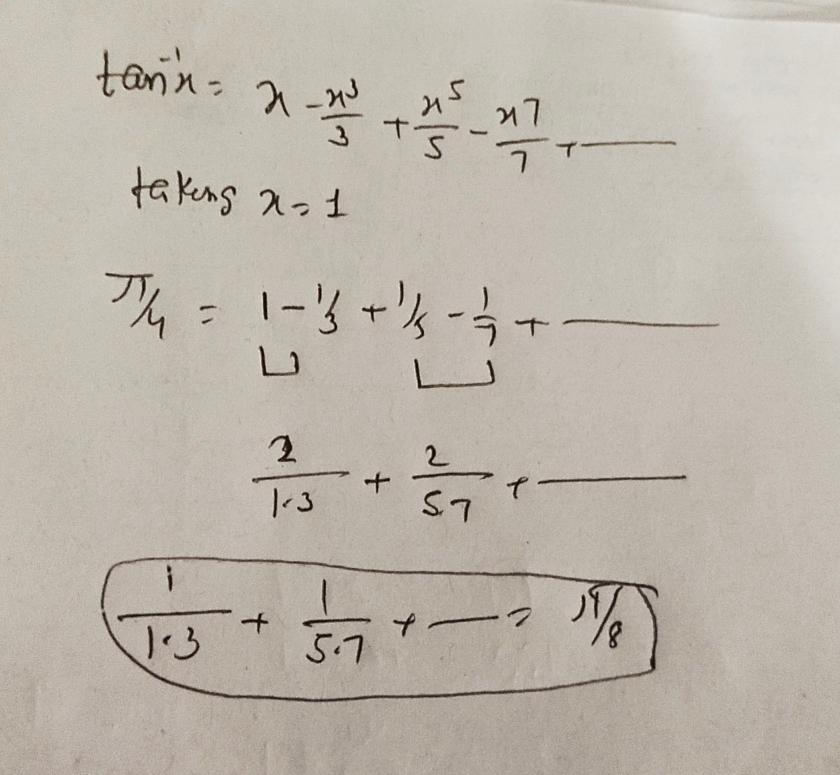 tan⁻¹x = x - x³/3 + x⁵/5 - x7/7 + ——
taking x = 1
π/4 = 1 - 1/3 + 1/5 - 1/7 + ——
2/1·3 + 2/5.7 + ——
1/1·3 + 1/5·7 + — = π/8